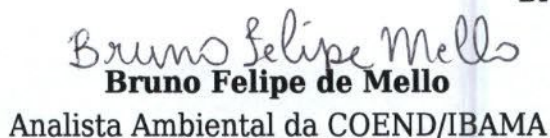 Bruno Felipe Mello
Bruno Felipe de Mello
Analista Ambiental da COEND/IBAMA